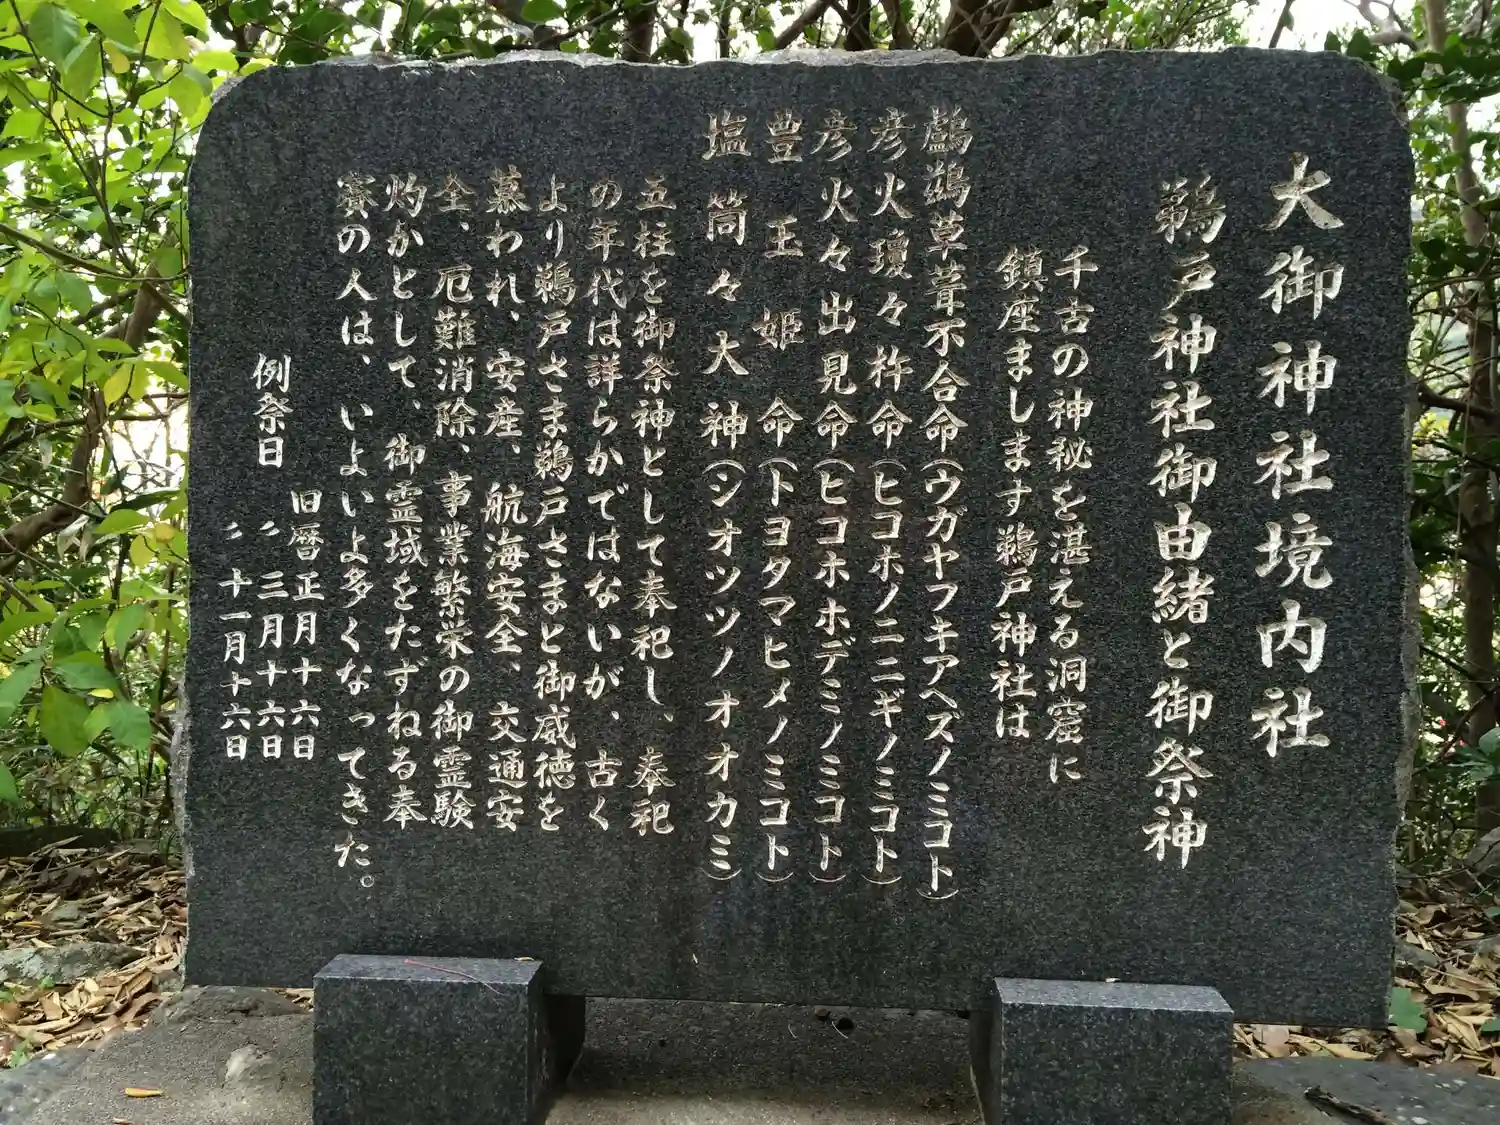 大御神社境内社
鵜戸神社御由緒と御祭神
千古の神秘を湛える洞窟に
鎮座まします鵜戸神社は
鸕鷀草葺不合命(ウガヤフキアヘズノミコト)
彦火瓊々杵命(ヒコホノニニギノミコト)
彦火々出見命(ヒコホホデミノミコト)
豊玉姫命(トヨタマヒメノミコト)
塩筒々大神(シオツツノオオカミ)
五柱を御祭神として奉祀し、奉祀
の年代は詳らかではないが、古く
より鵜戸さま鵜戸さまと御威徳を
慕われ、安産、航海安全、交通安
全、厄難消除、事業繁栄の御霊験
灼かとして、御霊域をたずねる奉
賽の人は、いよいよ多くなってきた。
例祭日
旧暦正月十六日
〃三月十六日
〃十一月十六日